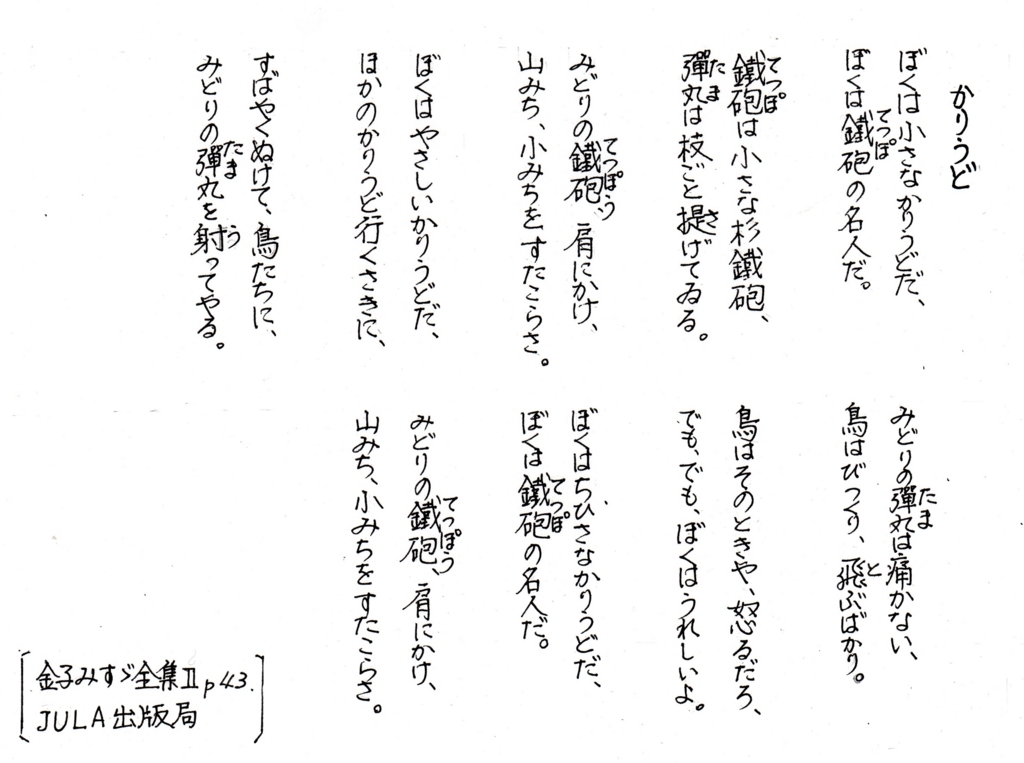 かりうど
ぼくは小さなかりうどだ、
ぼくは鐵砲の名人だ。
鐵砲は小さな杉鐵砲、
彈丸は枝ごと提げてゐる。
みどりの鐵砲、肩にかけ、
山みち、小みちをすたこらさ。
ぼくはやさしいかりうどだ、
ほかのかりうど行くさきに、
すばやくぬけて、鳥たちに、
みどりの彈丸を射ってやる。
みどりの彈丸は痛かない、
鳥はびつくり、飛ぶばかり。
鳥はそのときや、怒るだろ、
でも、でも、ぼくはうれしいよ。
ぼくはちひさなかりうどだ、
ぼくは鐵砲の名人だ。
みどりの鐵砲、肩にかけ、
山みち、小みちをすたこらさ。
[金子みすゞ全集Ⅱp43.
JULA出版局]